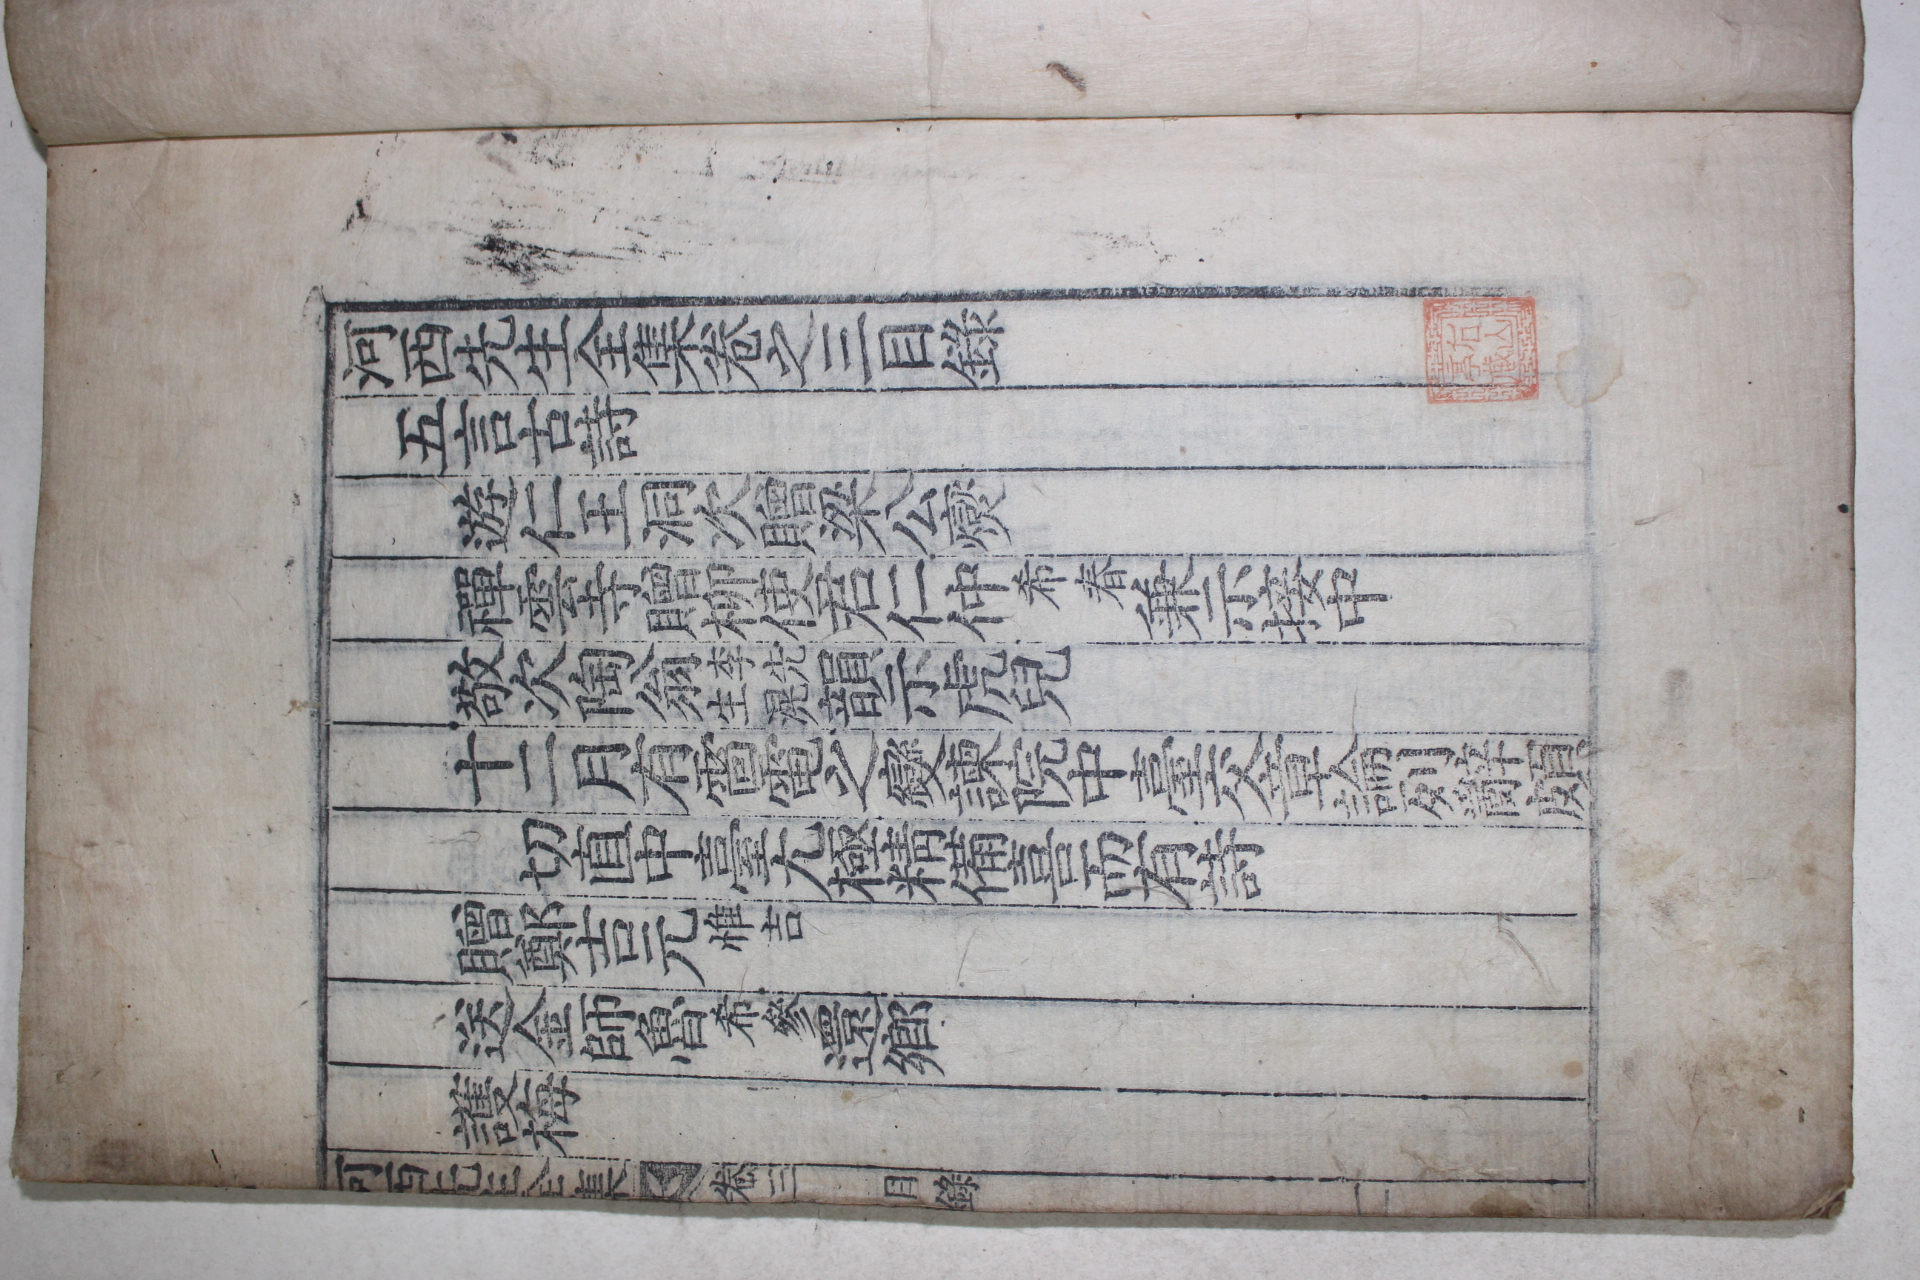 河西先生全集卷之三目錄
五言古詩
遊仁王洞次贈梁公燮
禪雲寺贈柳使君仁仲希春兼示接中
敬次陶翁李先生滉韻示虎兒
十二月有雷電之變諫院中臺交章論列辭頗
切直中臺尤極精備喜而有詩
贈鄭吉元惟吉
送金師魯希參還鄉
護梅
河西先生全集 卷三 目錄 一
石山亭藏